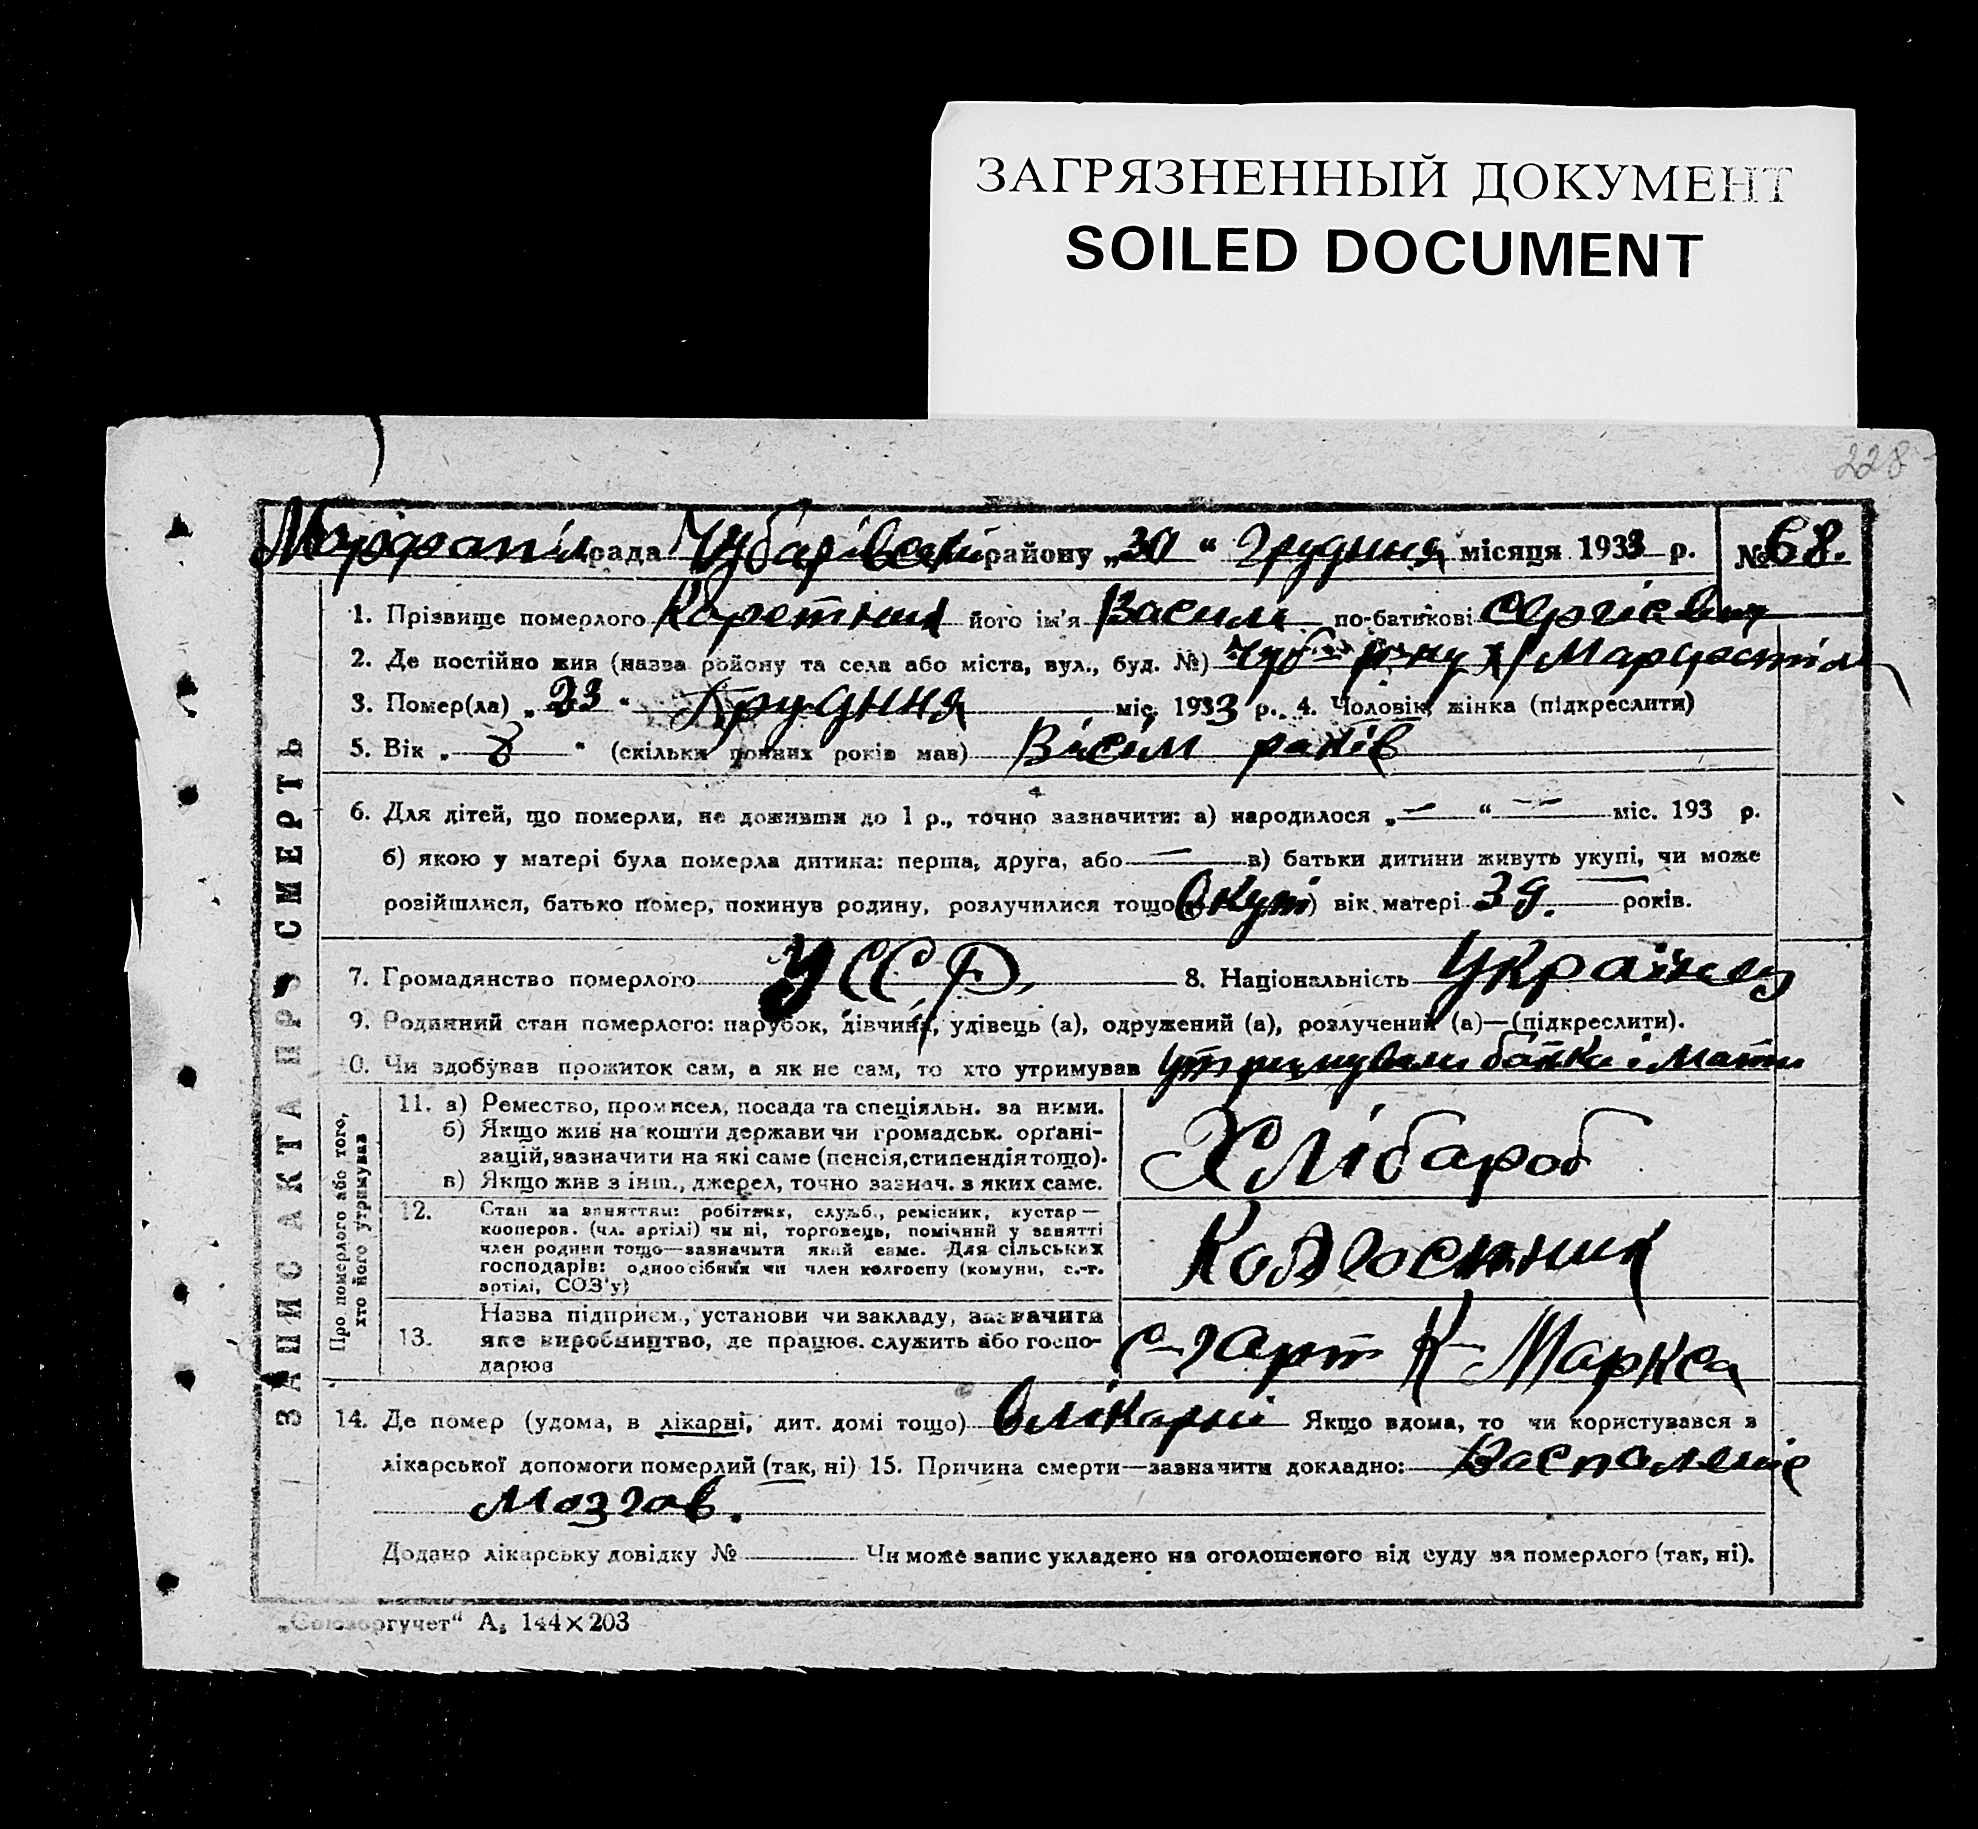 ЗАГРЯЗНЕННЫЙ ДОКУМЕНТ
SOILED DOCUMENT
228
рада Чубарівськ району „30“ Грудння місяця 1933 р. № 68.
ЗАПИС АКТА ПРО СМЕРТЬ
1. Прізвище померлого Каретник його ім'я Василь по-батькові Сергієвич
2. Де постійно жив (назва району та села або міста, вул., буд. №) Чуб рну
3. Помер(ла) „23“ Грудння міс. 1933 р. 4. Чоловік, жінка (підкреслити)
5. Вік „8“ (скільки повних років мав) Вісім раків
6. Для дітей, що померли, не доживши до 1 р., точно зазначити: а) народилося „—“ — міс. 193 р.
б) якою у матері була померла дитина: перша, друга, або — в) батьки дитини живуть укупі, чи може
розійшлися, батько помер, покинув родину, розлучилися тощо Вкупі) вік матері 39. років.
7. Громадянство померлого УССР, 8. Національність Українец
9. Родинний стан померлого: парубок, дівчина, удівець (а), одружений (а), розлучений (а)—(підкреслити).
10. Чи здобував прожиток сам, а як не сам, то хто утримував утримували батько і мати
Про померлого або того, хто його утримував
11. а) Ремество, промисел, посада та спеціяльн. за ними.
б) Якщо жив на кошти держави чи громадськ. орґані-
зацій, зазначити на які саме (пенсія, стипендія тощо).
в) Якщо жив з інш., джерел, точно зазнач. з яких саме.
Хлібароб
12. Стан за заняттям: робітник, служб., ремісник, кустар—
кооперов. (чл. артілі) чи ні, торговець, помічний у занятті
член родини тощо—зазначити який саме. Для сільських
господарів: одноосібник чи член колгоспу (комуни, с.-г.
артілі, СОЗ'у)
Колгоспник
13. Назва підприєм., установи чи закладу, зазначити
яке виробництво, де працюв. служить або госпо-
дарюв
с-г арт К-Маркса
14. Де помер (удома, в лікарні, дит. домі тощо) В лікарні Якщо вдома, то чи користувався з
лікарської допомоги померлий (так, ні) 15. Причина смерти—зазначити докладно: Васполение
мозгов.
Додано лікарську довідку № Чи може запис укладено на оголошеного від суду за померлого (так, ні).
„Союзоргучет“ А₅ 144×203